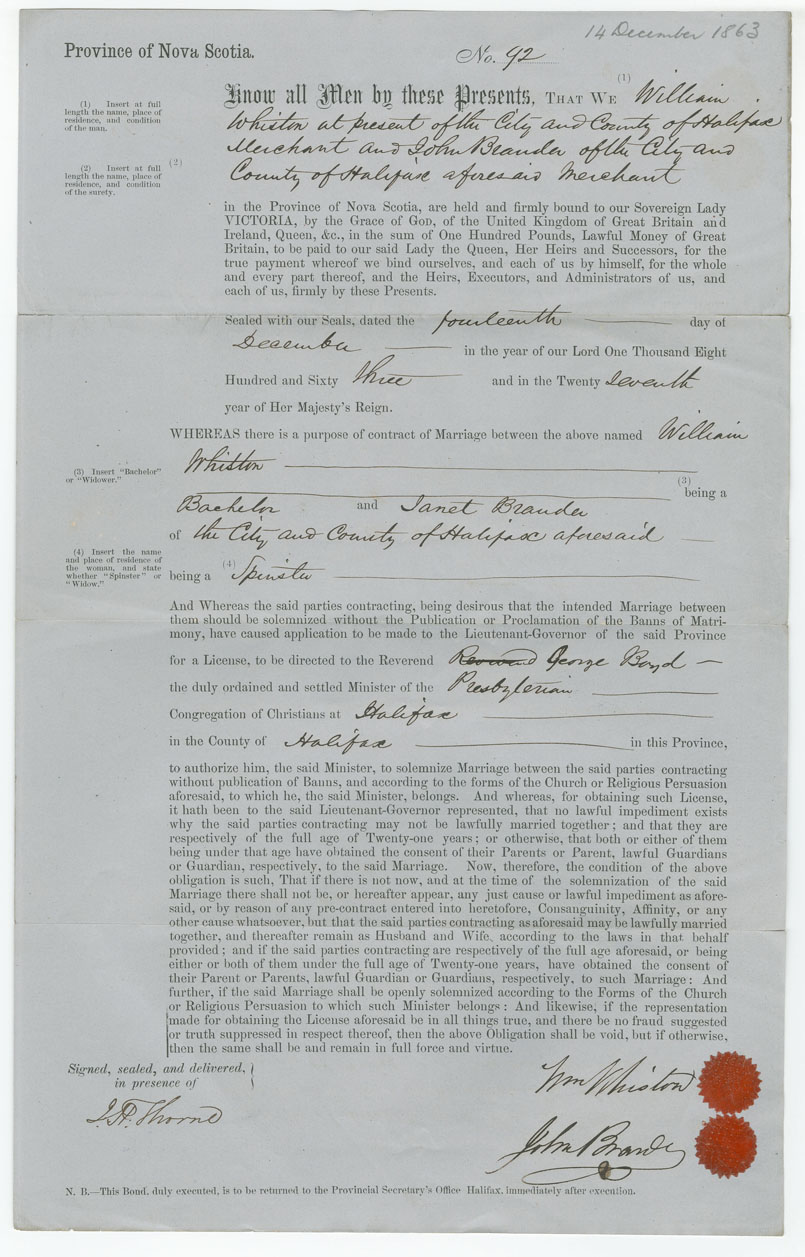 14 December 1863
Province of Nova Scotia.
No. 92
(1) Insert at full
length the name, place of
residence, and condition
of the man.
Know all Men by these Presents, THAT WE (1) William
Whiston at present of the City and County of Halifax
Merchant and John Brander of the City and
(2) Insert at full
length the name, place of
residence, and condition
of the surety.
(2)
County of Halifax aforesaid Merchant
in the Province of Nova Scotia, are held and firmly bound to our Sovereign Lady
VICTORIA, by the Grace of GOD, of the United Kingdom of Great Britain and
Ireland, Queen, &c., in the sum of One Hundred Pounds, Lawful Money of Great
Britain, to be paid to our said Lady the Queen, Her Heirs and Successors, for the
true payment whereof we bind ourselves, and each of us by himself, for the whole
and every part thereof, and the Heirs, Executors, and Administrators of us, and
each of us, firmly by these Presents.
Sealed with our Seals, dated the fourteenth day of
December in the year of our Lord One Thousand Eight
Hundred and Sixty three and in the Twenty Seventh
year of Her Majesty's Reign.
WHEREAS there is a purpose of contract of Marriage between the above named William
Whiston
(3) Insert "Bachelor"
or "Widower."
(3) being a
Bachelor and Janet Brander
of the City and County of Halifax aforesaid
(4) Insert the name
and place of residence of
the woman, and state
whether "Spinster" or
"Widow."
being a (4) Spinster
And Whereas the said parties contracting, being desirous that the intended Marriage between
them should be solemnized without the Publication or Proclamation of the Banns of Matri-
mony, have caused application to be made to the Lieutenant-Governor of the said Province
for a License, to be directed to the Reverend George Boyd
the duly ordained and settled Minister of the Presbyterian
Congregation of Christians at Halifax
in the County of Halifax in this Province,
to authorize him, the said Minister, to solemnize Marriage between the said parties contracting
without publication of Banns, and according to the forms of the Church or Religious Persuasion
aforesaid, to which he, the said Minister, belongs. And whereas, for obtaining such License,
it hath been to the said Lieutenant-Governor represented, that no lawful impediment exists
why the said parties contracting may not be lawfully married together; and that they are
respectively of the full age of Twenty-one years; or otherwise, that both or either of them
being under that age have obtained the consent of their Parents or Parent, lawful Guardians
or Guardian, respectively, to the said Marriage. Now, therefore, the condition of the above
obligation is such, That if there is not now, and at the time of the solemnization of the said
Marriage there shall not be, or hereafter appear, any just cause or lawful impediment as afore-
said, or by reason of any pre-contract entered into heretofore, Consanguinity, Affinity, or any
other cause whatsoever, but that the said parties contracting as aforesaid may be lawfully married
together, and thereafter remain as Husband and Wife according to the laws in that behalf
provided; and if the said parties contracting are respectively of the full age aforesaid, or being
either or both of them under the full age of Twenty-one years, have obtained the consent of
their Parent or Parents, lawful Guardian or Guardians, respectively, to such Marriage: And
further, if the said Marriage shall be openly solemnized according to the Forms of the Church
or Religious Persuasion to which such Minister belongs: And likewise, if the representation
made for obtaining the License aforesaid be in all things true, and there be no fraud suggested
or truth suppressed in respect thereof, then the above Obligation shall be void, but if otherwise,
then the same shall be and remain in full force and virtue.
Signed, sealed, and delivered,
in presence of
Wm Whiston
J. H. Thorne
John Brander
N. B.—This Bond, duly executed, is to be returned to the Provincial Secretary's Office Halifax, immediately after execution.